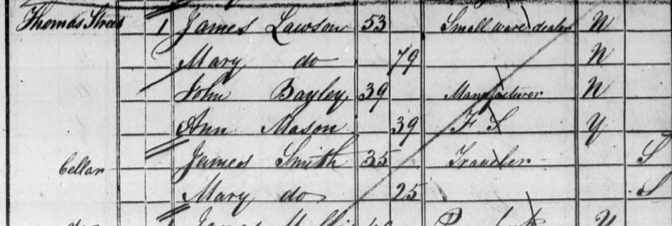 Thomas Street 1 James Lawson 53 Small ware dealer N
Mary do 79 N
John Bayley 39 Manufacturer N
Ann Mason 39 F S Y
Cellar James Smith 35 Traveler S
Mary do 25 S
do 1 James